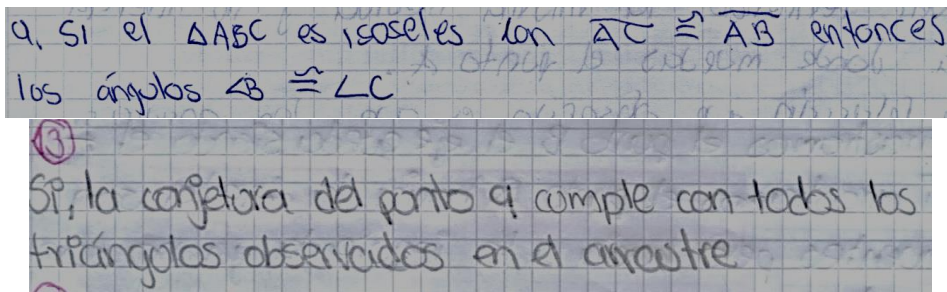 a. Si el △ABC es isoseles con \overline{AC} ≅ \overline{AB} entonces
los ángulos ∠B ≅ ∠C
13
Si, la conjetura del ponto 9 comple con todos los
triángulos observados en el arrastre